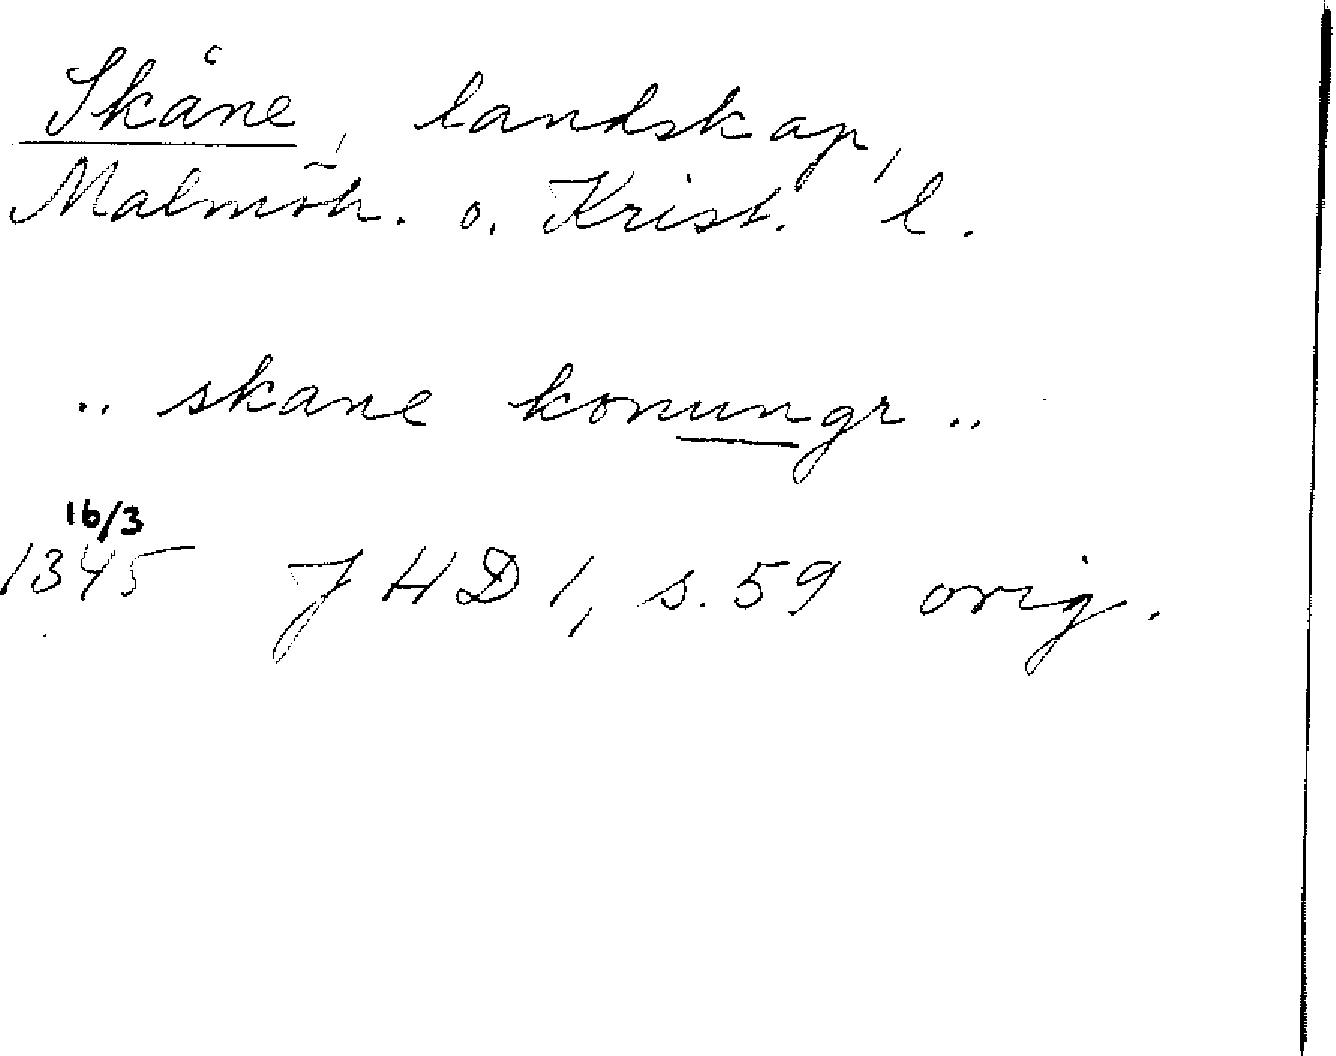 Skåne, landskap,
Malmöh. o. Krist. l.
.. skane konungr ..
16/3
1345 JHD 1, s. 59 orig.